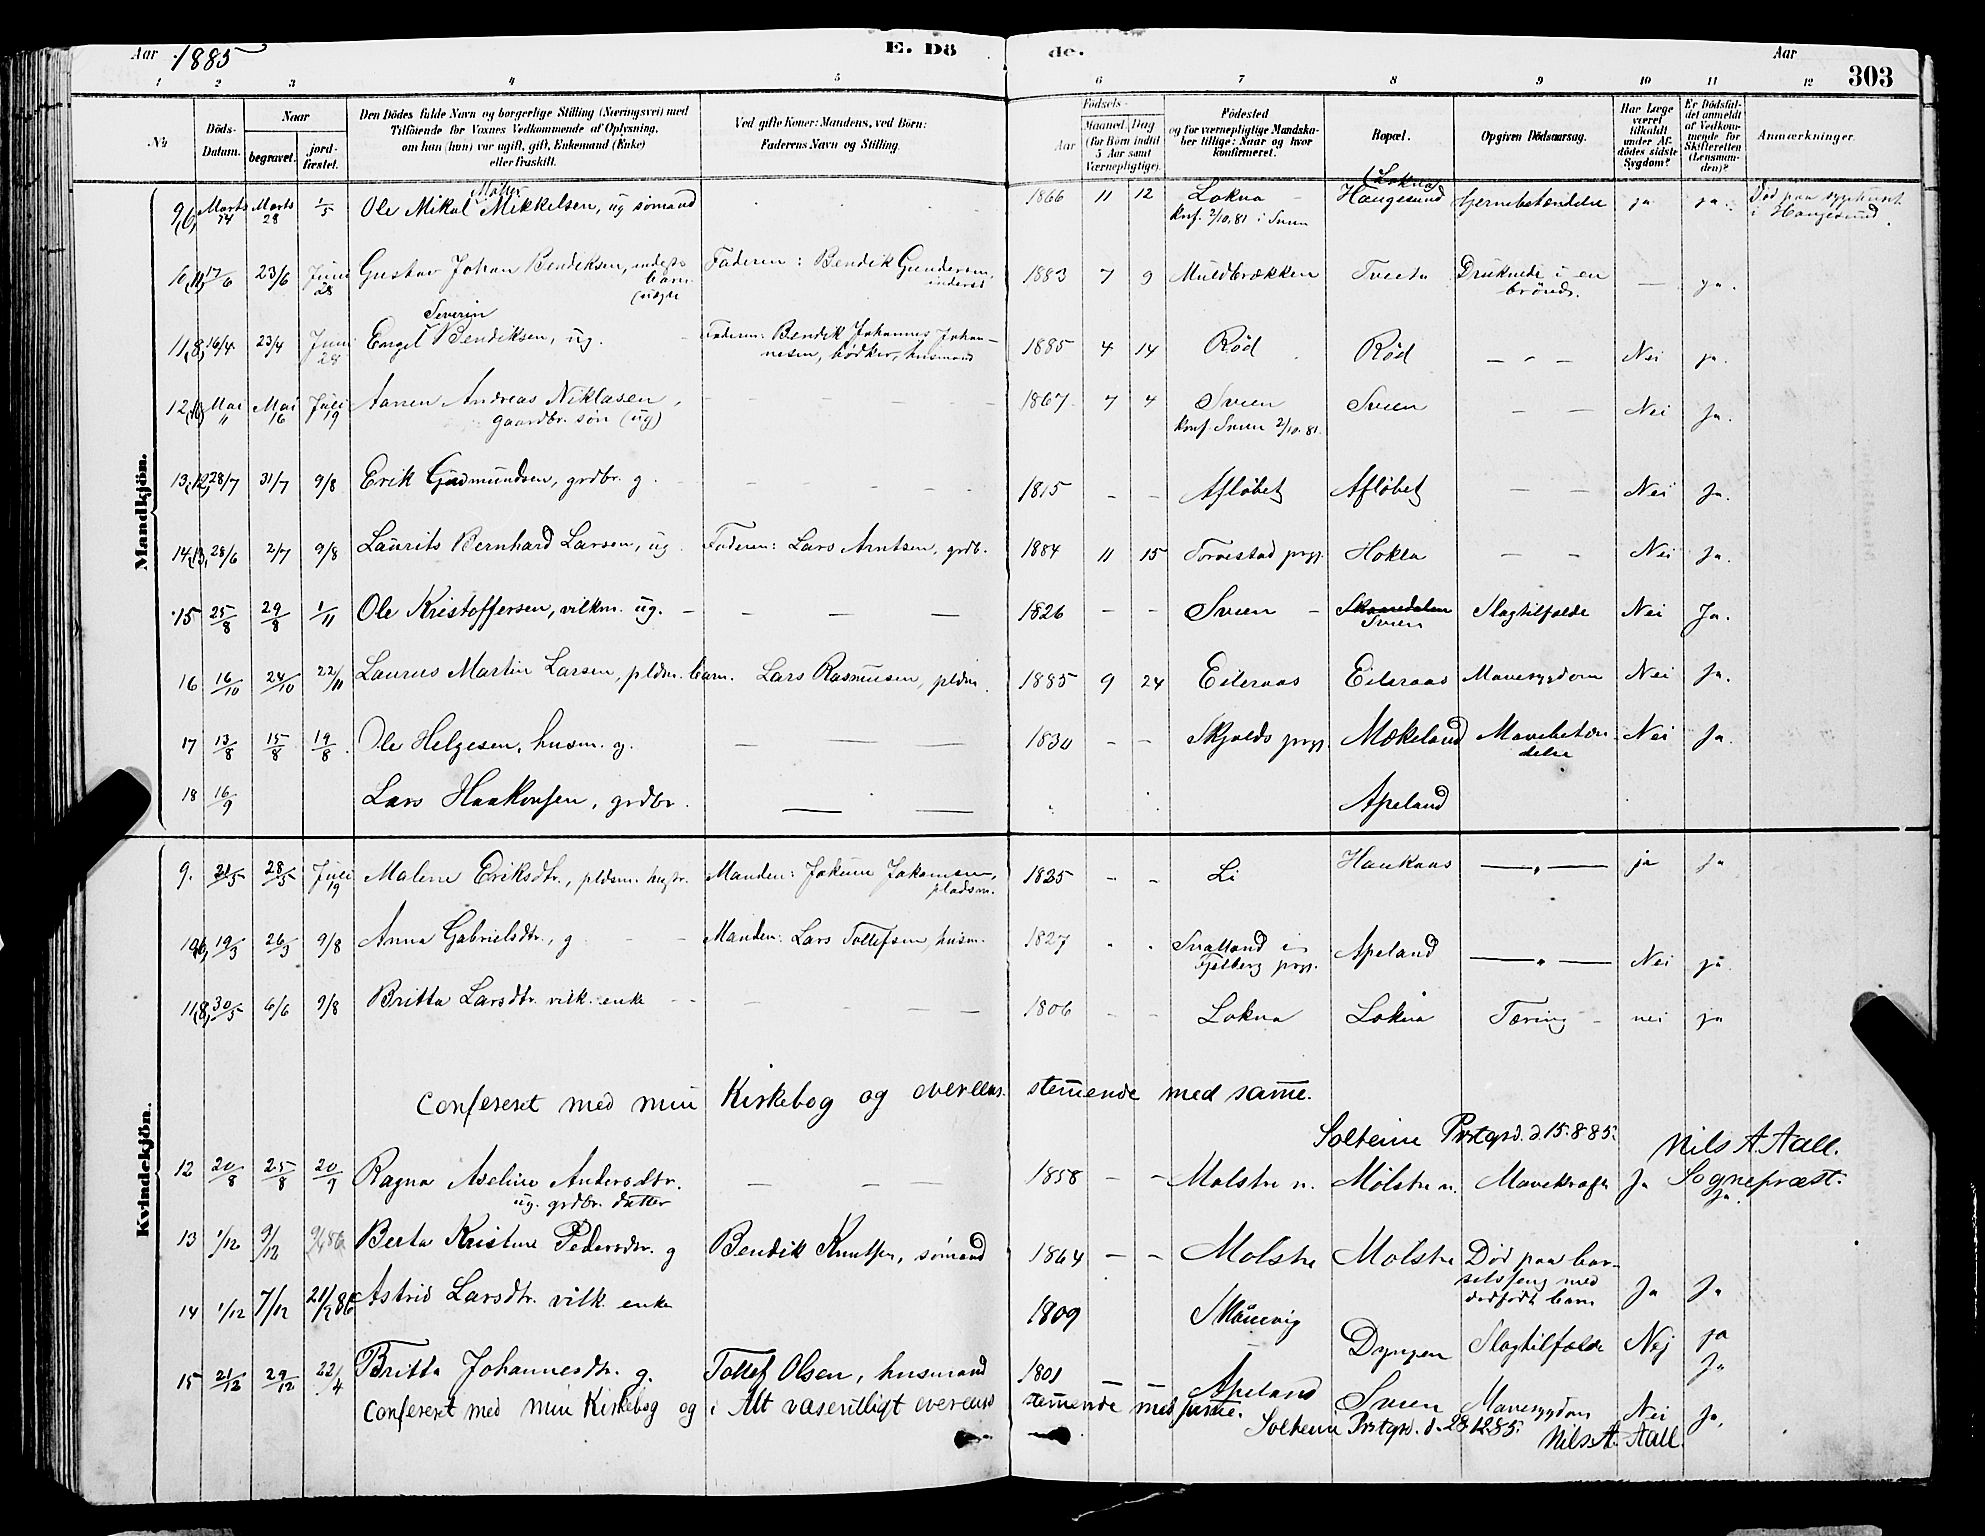 Aar 1885 E. Dö de. Aar 303
1 2 3 4 5 6 7 8 9 10 11 12
No. Döds-Datum. Naar begravet. jordfæstet. Den Dödes fulde Navn og borgerlige Stilling (Næringsvei) med Tilföiende for Voxnes Vedkommende af Oplysning, om han (hun) var ugift, gift, Enkemand (Enke) eller fraskilt. Ved gifte Koner: Mandens, ved Börn: Faderens Navn og Stilling. Födsels- Aar Maaned Dag (for Börn indtil 5 Aar samt Værnepligtige). Födested og for værnepligtige Mandskaber tillige: Naar og hvor konfirmeret. Bopæl. Opgiven Dödsaarsag. Har Læge været tilkaldt under Afdödes sidste Sygdom? Er Dödsfaldet anmeldt af Vedkommende for Skifteretten (Lensmanden)? Anmærkninger.
Mandkjön.
Marts 24 Marts 28 1/5 Ole Mikal Mikkelsen, ug sømand 1866 11 12 Lokna (Lokna) Haugesund Hjernebetændelse ja ja Død paa sygehuset
konf. 2/10.81 i Sveen i Haugesund
10 17/6 23/6 Juni 28 Gustav Johan Bendiksen, inderst barn Faderen: Bendik Gunderson, inderst 1883 7 9 Muldbrækken Tveeta Druknede i en brönd. — ja.
Severin
11, 8, 16/4 23/4 Juni 28 Engel Bendiksen, ug. Faderen: Bendik Johannes Johannesen, bødker, husmand 1885 4 14 Röd Röd — " — Nei ja.
12 Mai 11 Mai 16 Juli 19 Aanen Andreas Niklasen, 1867 7 4 Sveen Sveen — — Nei Ja.
gaardbr. søn (ug) Konf. Sveen 2/10.81.
13, 12, 28/7 31/7 9/8 Erik Gudmundsen, grdbr. g. 1815 - - Afløbet Afløbet — — Nei Ja.
14, 13, 28/6 2/7 9/8 Laurits Bernhard Larsen, ug. Faderen: Lars Arntsen, grdb. 1884 11 15 Torvestad prgj. Hokla — — Nei Ja.
15 25/8 29/8 1/11 Ole Kristoffersen, vilkm. ug. — — — — 1826 - - Sveen - Skaanedalen Slagtilfælde Nei Ja.
Sveen
16 16/10 24/10 22/11 Laurus Martin Larsen, pldm. barn. Lars Rasmusen, pldm. 1885 9 24 Eileraas Eileraas Mavesygdom Nei Ja.
17 13/8 15/8 19/8 Ole Helgesen, husm. g. — — — 1830 - - Skjolds prgj. Mækeland Mavebetændelse Nei Ja.
18 16/9 Lars Haakonsen, grdbr. — — Apeland
Kvindekjön.
9. 21/5 28/5 Juli 19 Malene Eriksdtr., pldsm. hustr. Manden: Jakum Jakomsen, pladsm. 1825 - - Li Haukaas — " — ja ja
10 19/3 26/3 9/8 Anna Gabrielsdtr., g - - Manden: Lars Tollefsen, husm. 1827 Apeland — " — Nei ja.
Fjelberg prgj.
11, 8, 30/5 6/6 9/8 Britta Larsdtr. vilk. enke - - — — — 1806 - - Lokna Lokna Tæring - nei ja
Confereret med min Kirkebog og overeens- stemmende med samme.
Solheim Prstgrd. d. 15.8.85. Nils A. Aall.
Sognepræst.
12 20/8 25/8 20/9 Ragna Aseline Andersdtr. — — — 1858 - - Molstre n. Mölstre n. Mavekræft Ja Ja
ug. grdbr. datter
13 1/12 9/12 Berta Kristine Pedersdtr. g Bendik Knutsen, sømand 1864 — — Molstre Molstre Död paa barselsseng med dødfødt barn Ja Ja
14 1/12 7/12 21/2 86 Astrid Larsdtr. vilk. enke 1809 Skånevig Dyngen Slagtilfælde Nej ja
15 21/12 29/12 22/4 Britta Johannesdtr. g. Tollef Olsen, husmand 1801 — — Apeland Sveen Mavesygdom Nei Ja.
Ja
Confereret med min Kirkebog og i Alt væsentligt overeens stemmende med samme.
Solheim Prstgrd. d. 28.12.85. Nils A. Aall.